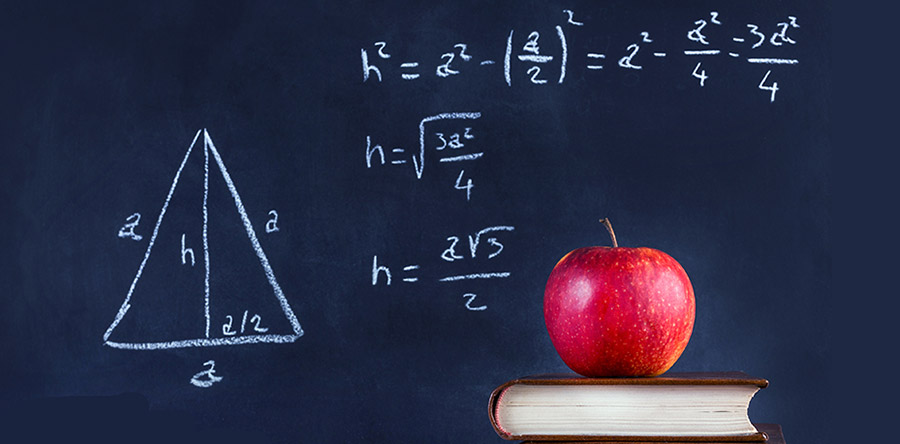 h² = a² - (a/2)² = a² - a²/4 = 3a²/4
h = √(3a²/4)
h = a√3/2
a
a
h
a/2
a